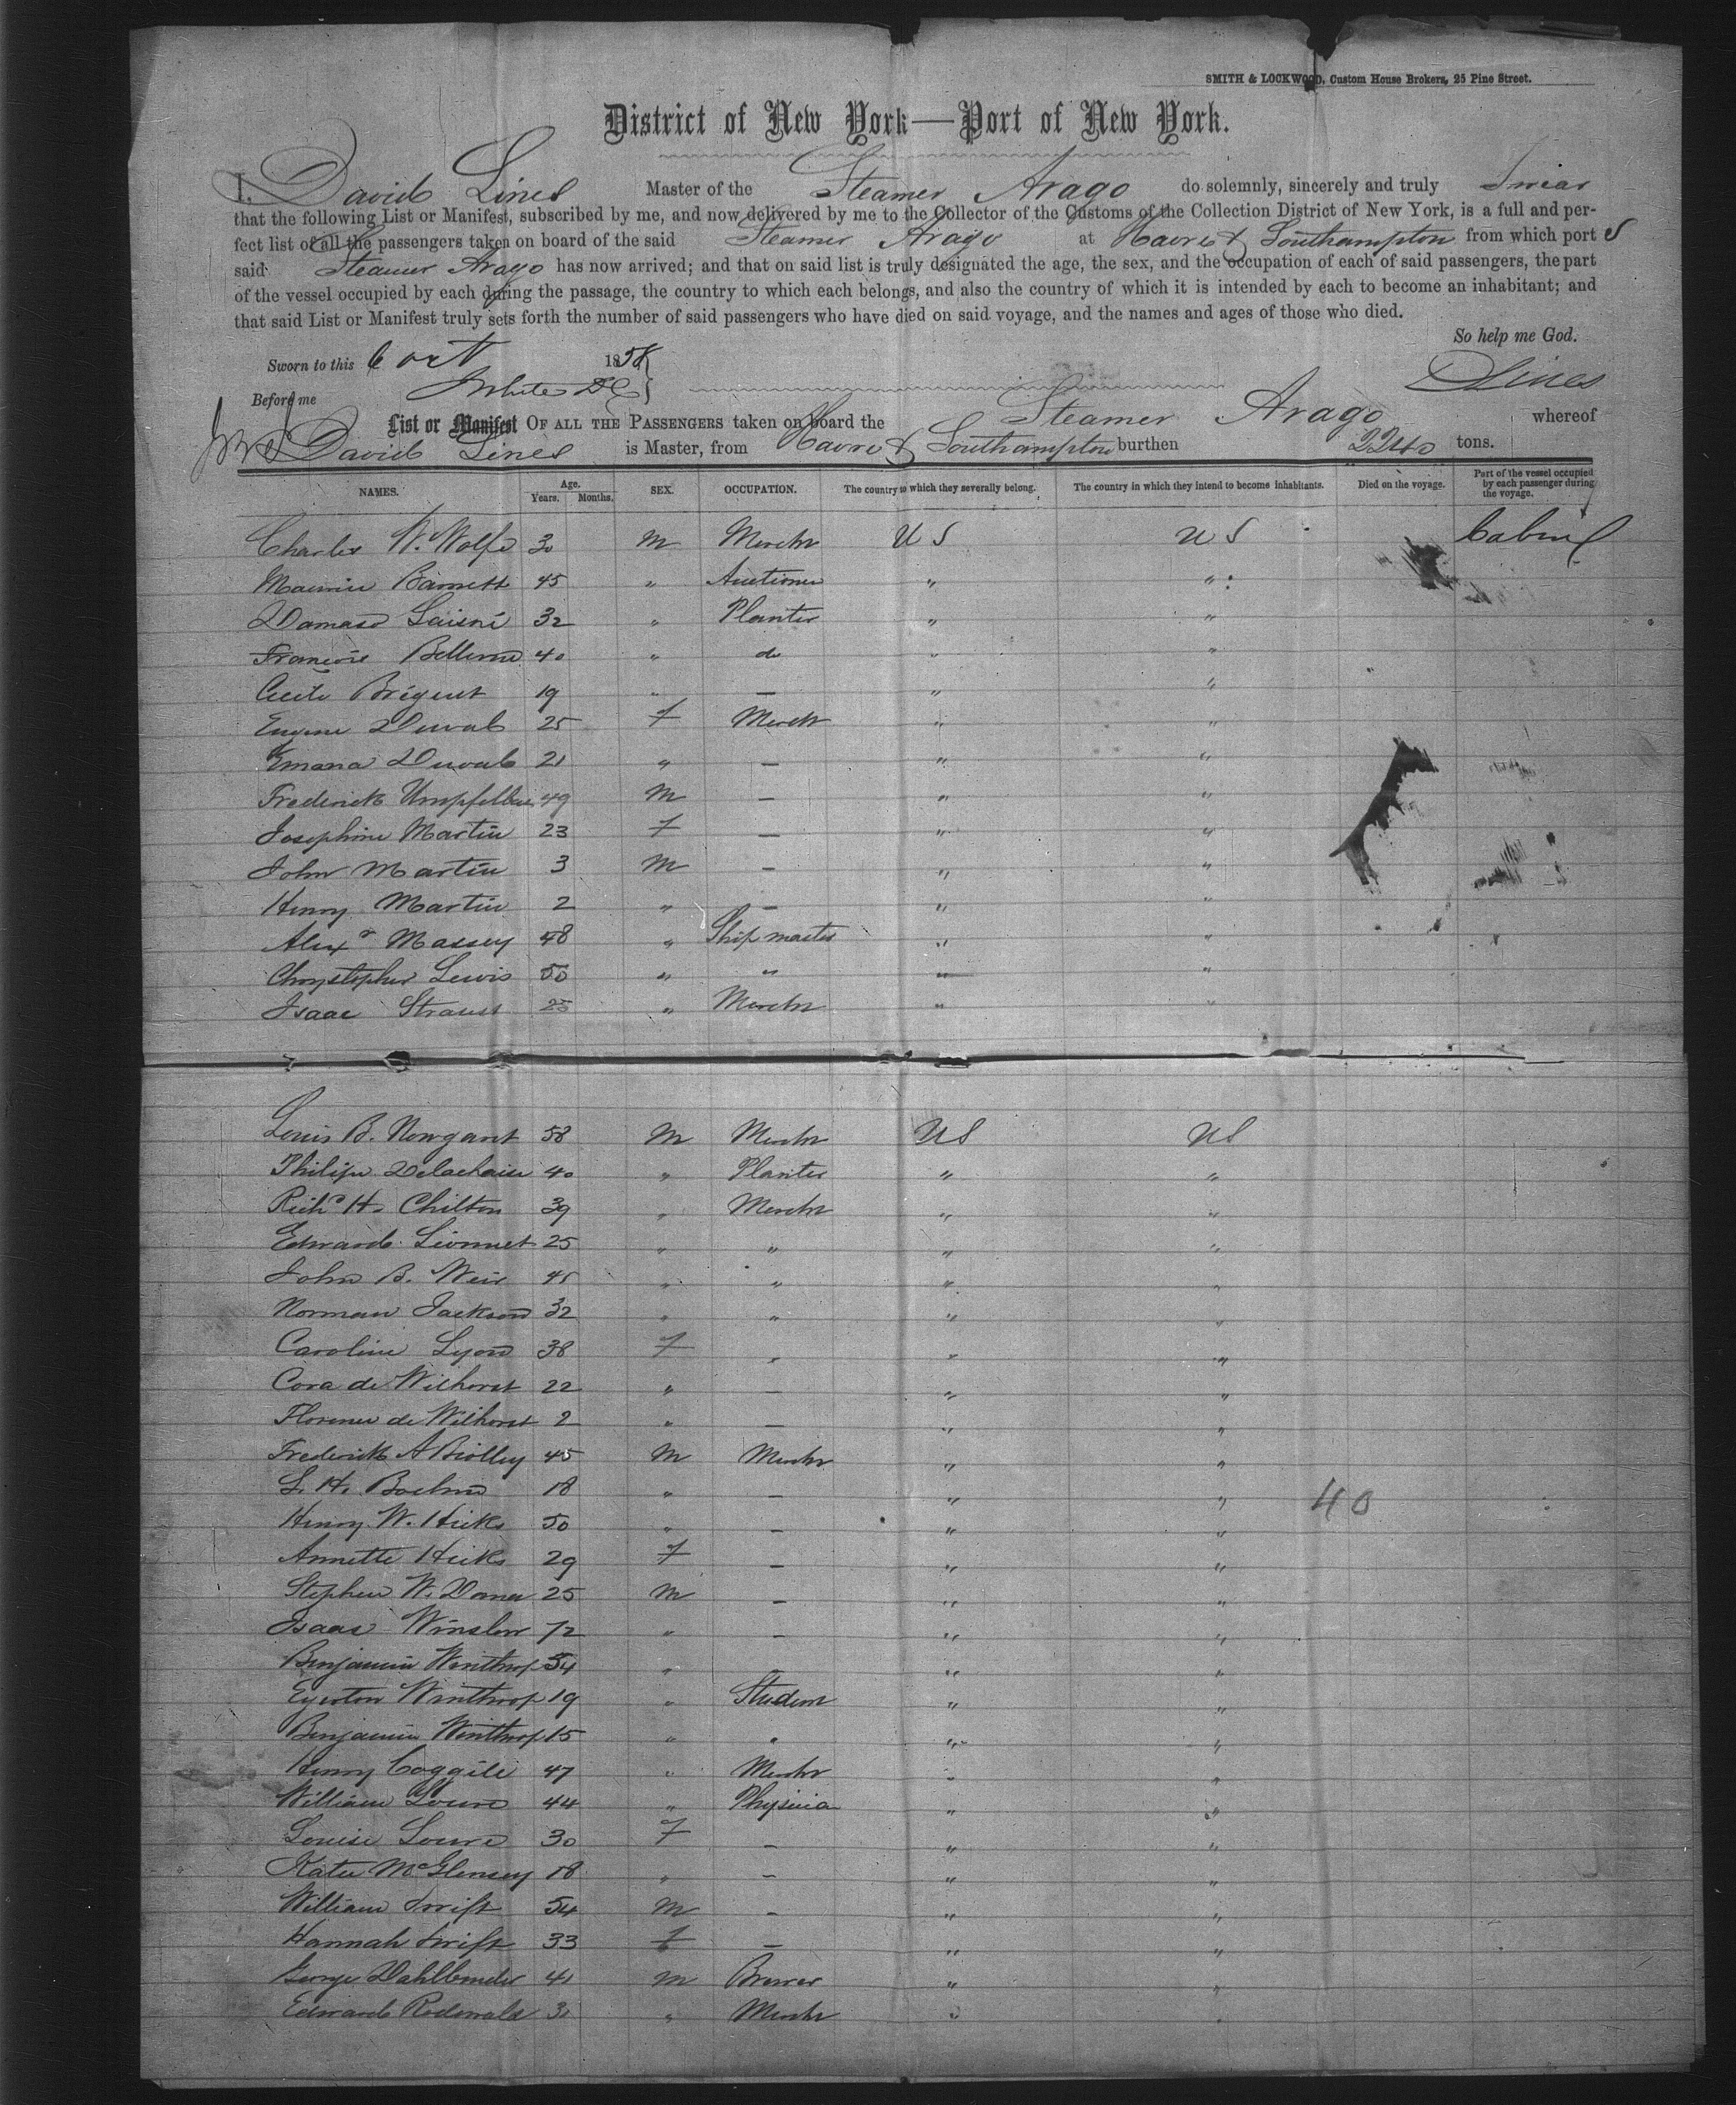 SMITH & LOCKWOOD, Custom House Brokers, 25 Pine Street.
District of New York—Port of New York.
I, David Lines Master of the Steamer Arago do solemnly, sincerely and truly Swear
that the following List or Manifest, subscribed by me, and now delivered by me to the Collector of the Customs of the Collection District of New York, is a full and per-
fect list of all the passengers taken on board of the said Steamer Arago at Havre & Southampton from which port s
said Steamer Arago has now arrived; and that on said list is truly designated the age, the sex, and the occupation of each of said passengers, the part
of the vessel occupied by each during the passage, the country to which each belongs, and also the country of which it is intended by each to become an inhabitant; and
that said List or Manifest truly sets forth the number of said passengers who have died on said voyage, and the names and ages of those who died.
So help me God.
Sworn to this 6 oct 1858
D Lines
Before me White DC
List or Manifest OF ALL THE PASSENGERS taken on board the Steamer Arago whereof
David Lines is Master, from Havre & Southampton burthen 2240 tons.
NAMES. Age. Years. Months. SEX. OCCUPATION. The country to which they severally belong. The country in which they intend to become inhabitants. Died on the voyage. Part of the vessel occupied by each passenger during the voyage.
Charles W. Wolfe 30 M Mercht US US Cabin
Maurice Barnett 45 " Auctioneer " "
Damaso Lainé 32 " Planter " "
Francois 40 " do " "
Cecile 19 " — " "
Eugene Duval 25 F Mercht " "
Duval 21 " — " "
Frederick 49 M — " "
Josephine Martin 23 F — " "
John Martin 3 M — " "
Henry Martin 2 " — " "
Alexr Massey 48 " Ship master " "
Chrystopher Lewis 50 " " " "
Isaac Strauss 25 " Mercht " "
Louis B. 58 M Mercht US US
Philipe Delachaise 40 " Planter " "
Richd H. Chilton 39 " Mercht " "
Edward Lionnet 25 " " " "
John B. Weir 45 " " " "
Norman Jackson 32 " " " "
Caroline Lyon 38 F " " "
Cora de Wilhorst 22 " — " "
Florence de Wilhorst 2 " — " "
Frederick A Briolley 45 M Mercht " "
L. H. Boehm 18 " — " " 40
Henry W. Hicks 50 " — " "
Annette Hicks 29 F — " "
Stephen W. Dana 25 M — " "
Isaac Winslow 72 " — " "
Benjamin Winthrop 54 " " "
Egerton Winthrop 19 " Student " "
Benjamin Winthrop 15 " " " "
Henry Coggill 47 " Mercht " "
William 44 " Physician " "
Louise 30 F — " "
Katie McGlensey 18 " — " "
William Swift 54 M — " "
Hannah Swift 33 F — " "
George Dahlbender 41 M Brewer " "
Edward Rodewald 30 " Mercht " "